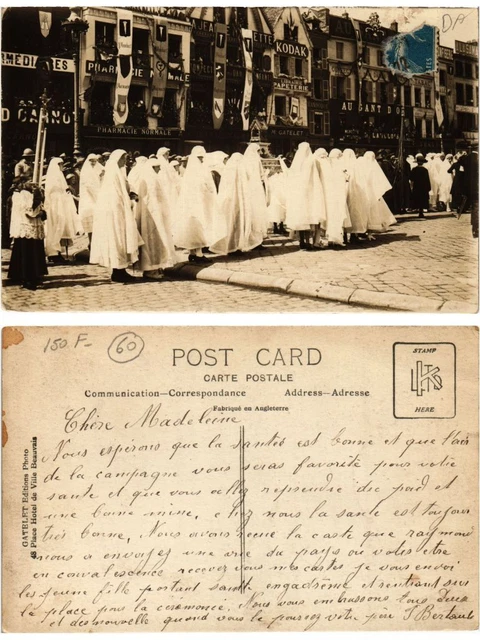 DA
KODAK
PHARMACIE NORMALE
PAPETERIE
AU GANT D'OR
D CARNOT
G. GATELET
PHARMACIE NORMALE
150 F-
60
POST CARD
CARTE POSTALE
Communication—Correspondance
Address—Adresse
Fabriqué en Angleterre
STAMP
HERE
GATELET Editions Photo
48 Place Hotel de Ville Beauvais
Chère Madeleine
Nous espérons que la santés est bonne et que l'air
de la campagne vous seras favorité pour votre
santé et que vous allez reprendre du poid et
une bonne mine, chez nous la santé est toujour
très bonne, Nous avons reçue la carte que raymond
nous a envoyez une vue du pays ou vous etre
en convalescence recever vous mes cartes je vous envoi
les jeune fille portant sainte engadrème et rentrant sur
la place pour la cérémonce. Nous vous embrassons tous deux
et des nouvelle quand vous le pourrez votre père J. Bertault